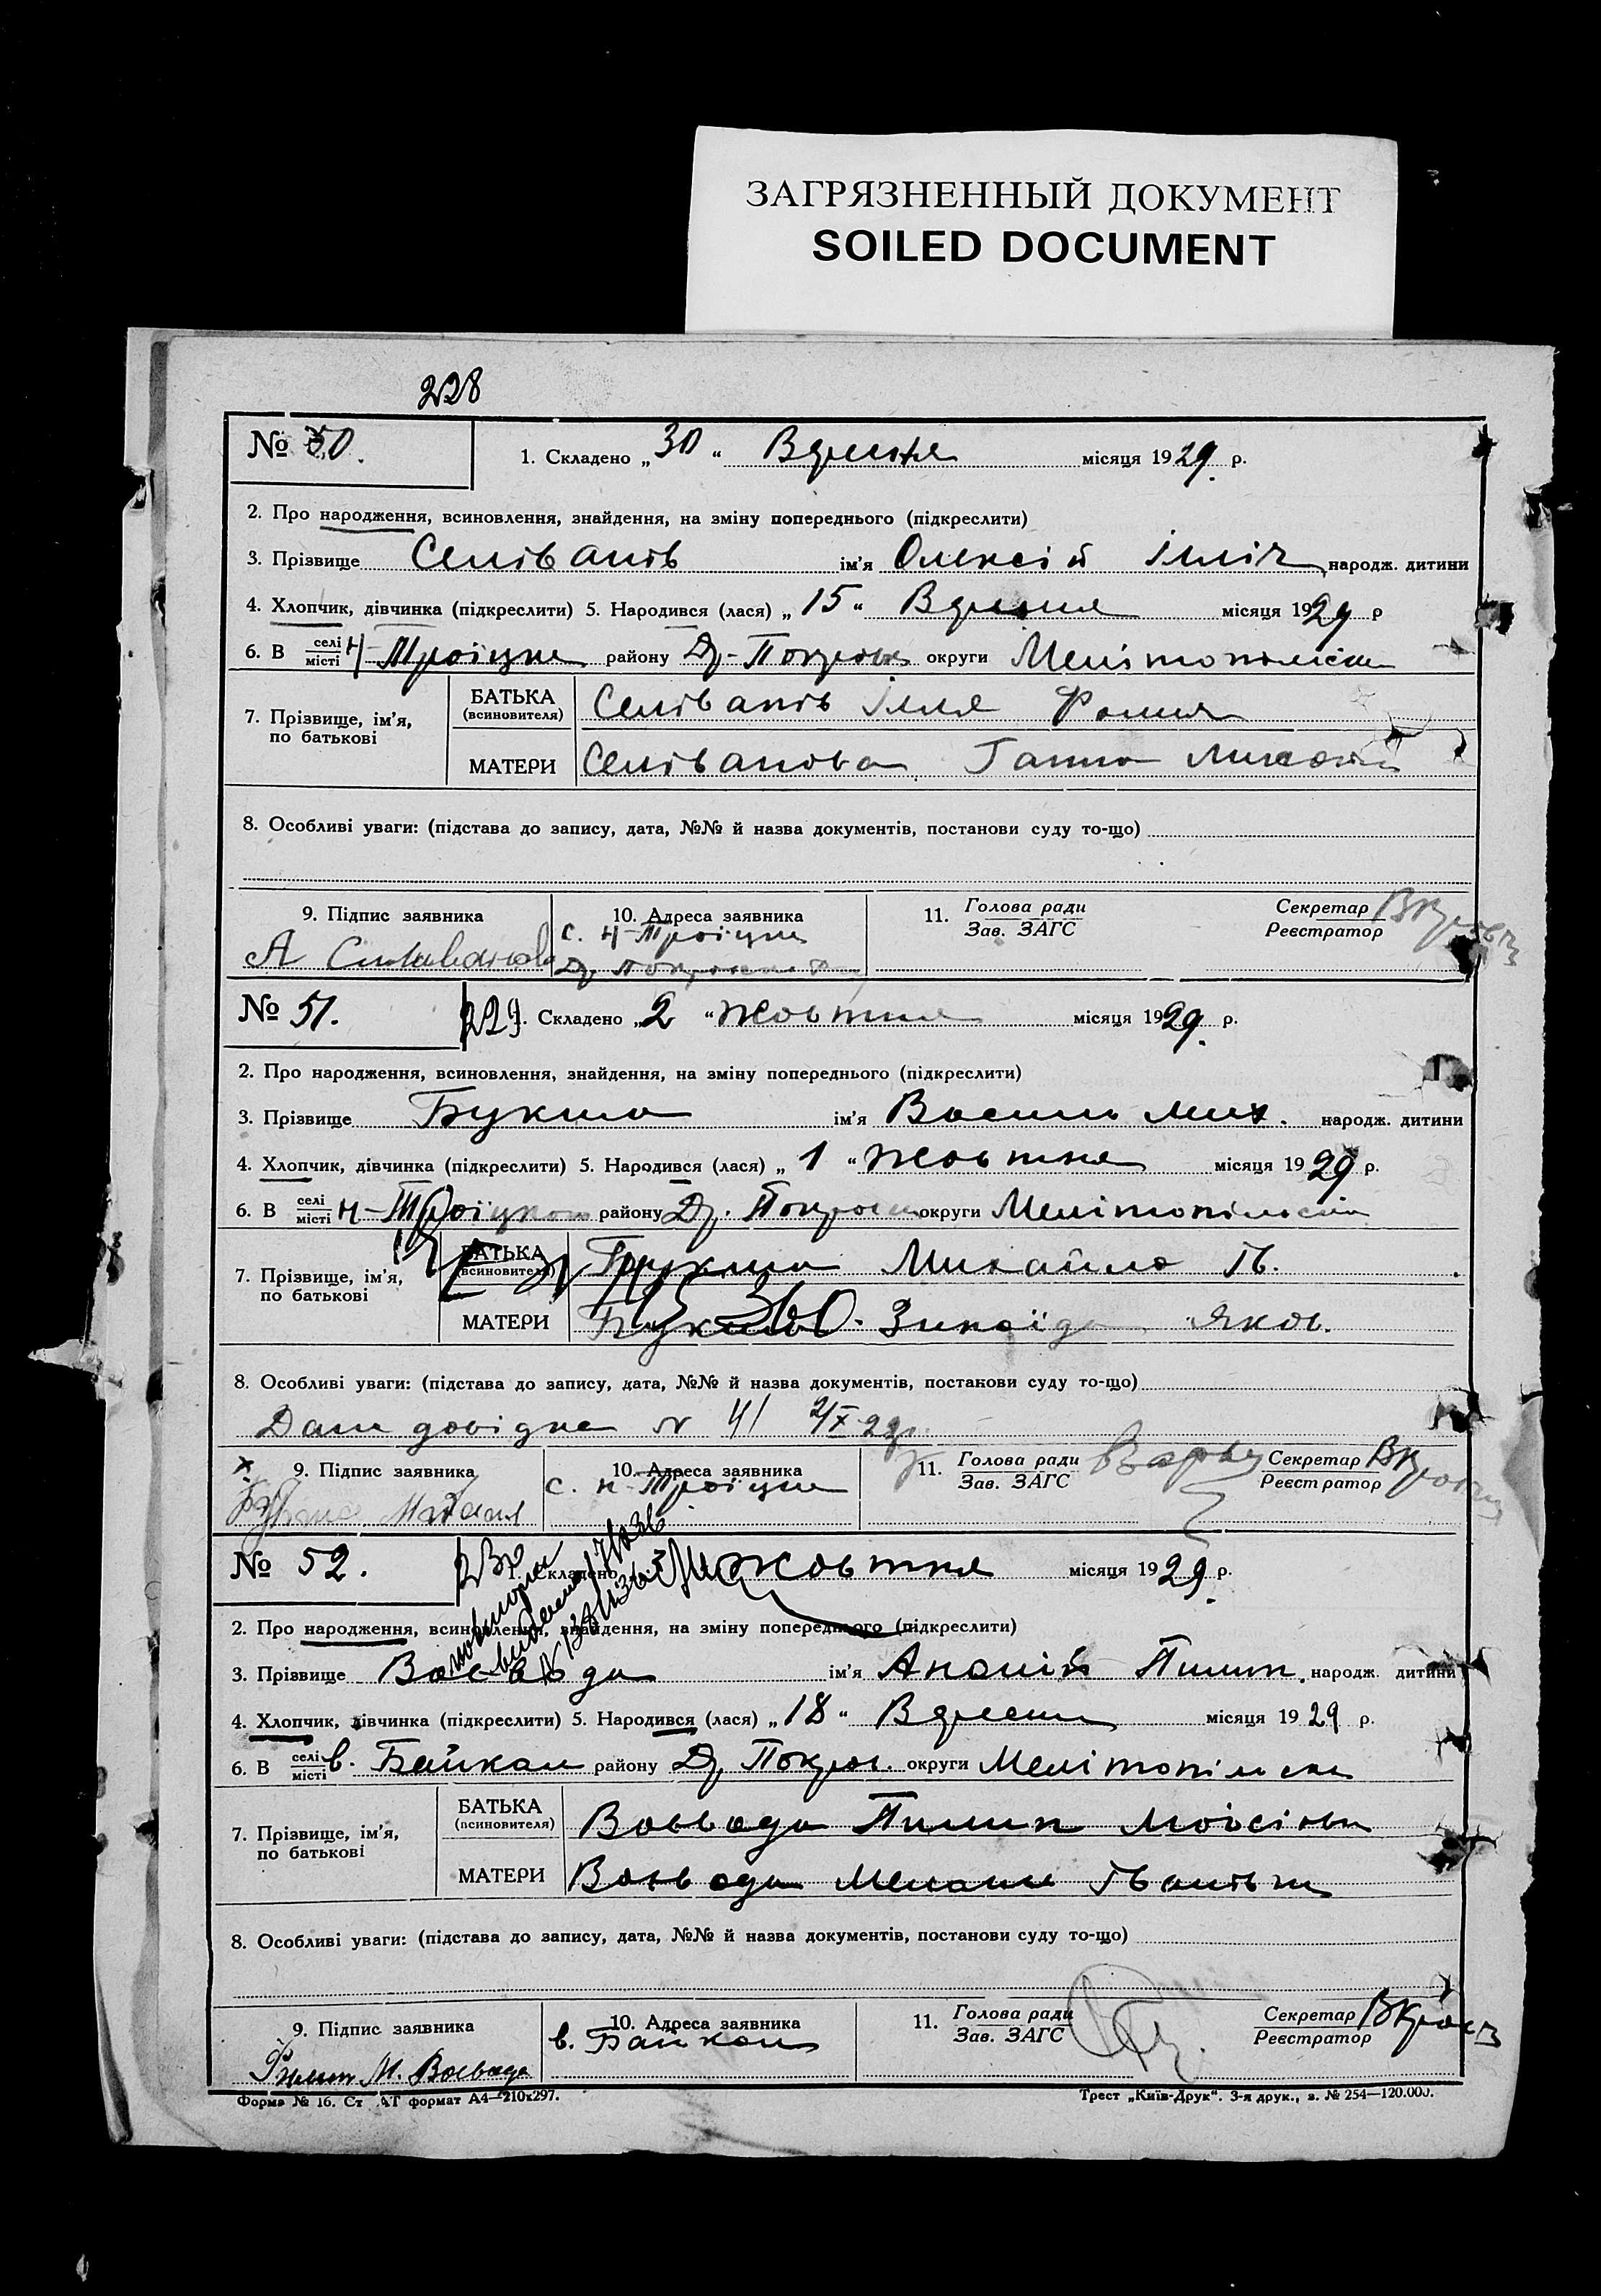 ЗАГРЯЗНЕННЫЙ ДОКУМЕНТ
SOILED DOCUMENT
228
№ 50.
1. Складено „30“ Вересня місяця 1929 р.
2. Про народження, всиновлення, знайдення, на зміну попереднього (підкреслити)
3. Прізвище Селіванів ім’я Олексій Ілліч народж. дитини
4. Хлопчик, дівчинка (підкреслити) 5. Народився (лася) „15“ Вересня місяця 1929 р
6. В селі місті Н-Троїцьке району Др-Покров округи Мелітопільськ
7. Прізвище, ім’я, по батькові
БАТЬКА (всиновителя) Селіванів Ілля
МАТЕРИ Селіванова Ганна
8. Особливі уваги: (підстава до запису, дата, №№ й назва документів, постанови суду то-що)
9. Підпис заявника
10. Адреса заявника
с. Н-Троїцьке
11. Голова ради Зав. ЗАГС
Секретар Реєстратор
№ 51.
229 1. Складено „2“ Жовтня місяця 1929 р.
2. Про народження, всиновлення, знайдення, на зміну попереднього (підкреслити)
3. Прізвище Букша ім’я Василь Мих. народж. дитини
4. Хлопчик, дівчинка (підкреслити) 5. Народився (лася) „1“ Жовтня місяця 1929 р.
6. В селі місті Н-Троїцьком району Др. Покровськ округи Мелітопільськ
7. Прізвище, ім’я, по батькові
БАТЬКА (всиновителя) Букша Михайло Ів.
МАТЕРИ Букша Зинаїда Яков.
8. Особливі уваги: (підстава до запису, дата, №№ й назва документів, постанови суду то-що)
Дана довідка № 41 2/X-29р.
9. Підпис заявника
10. Адреса заявника
с. Н-Троїцьке
11. Голова ради Зав. ЗАГС
Секретар Реєстратор
№ 52.
230 1. Складено Жовтня місяця 1929 р.
2. Про народження, всиновлення, знайдення, на зміну попереднього (підкреслити)
3. Прізвище Воєвода ім’я Ананій Пилип. народж. дитини
4. Хлопчик, дівчинка (підкреслити) 5. Народився (лася) „18“ Вересня місяця 1929 р.
6. В селі місті в. Байкал району Др Покров. округи Мелітопільськ
7. Прізвище, ім’я, по батькові
БАТЬКА (всиновителя) Воєвода Пилип Мойсієв
МАТЕРИ Воєвода Мелання Іванівн
8. Особливі уваги: (підстава до запису, дата, №№ й назва документів, постанови суду то-що)
9. Підпис заявника
Филип М. Воевода
10. Адреса заявника
в. Байкал
11. Голова ради Зав. ЗАГС
Секретар Реєстратор
Форма № 16. Ст АТ формат А4—210х297.
Трест „Київ-Друк“. 3-я друк., з. № 254—120.000.